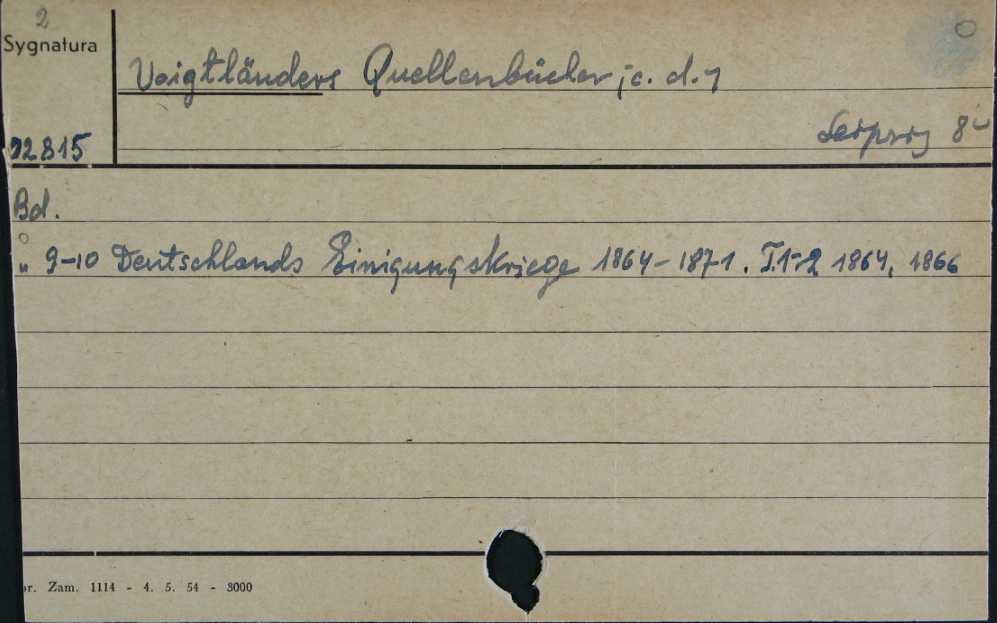 2
Sygnatura
Voigtländers Quellenbücher; c. d. 7
Leipzig 8°
92815
Bd.
" 9-10 Deutschlands Einigungskriege 1864-1871. T.1-2 1864, 1866
Zam. 1114 - 4. 5. 54 - 3000